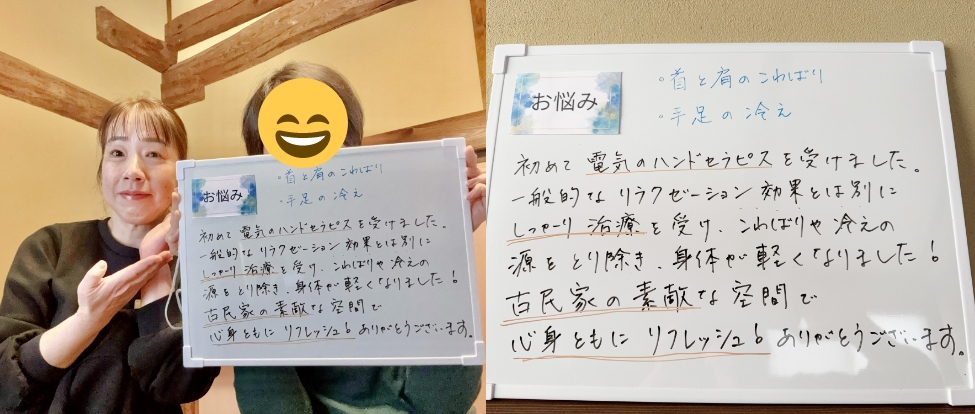 お悩み
・首と肩のこわばり
・手足の冷え
初めて電気のハンドセラピスを受けました。
一般的なリラクゼーション効果とは別に
しっかり治療を受け、こわばりや冷えの
源をとり除き、身体が軽くなりました!
古民家の素敵な空間で
心身ともにリフレッシュ♪ありがとうございます。
お悩み
・首と肩のこわばり
・手足の冷え
初めて電気のハンドセラピスを受けました。
一般的なリラクゼーション効果とは別に
しっかり治療を受け、こわばりや冷えの
源をとり除き、身体が軽くなりました!
古民家の素敵な空間で
心身ともにリフレッシュ♪ありがとうございます。